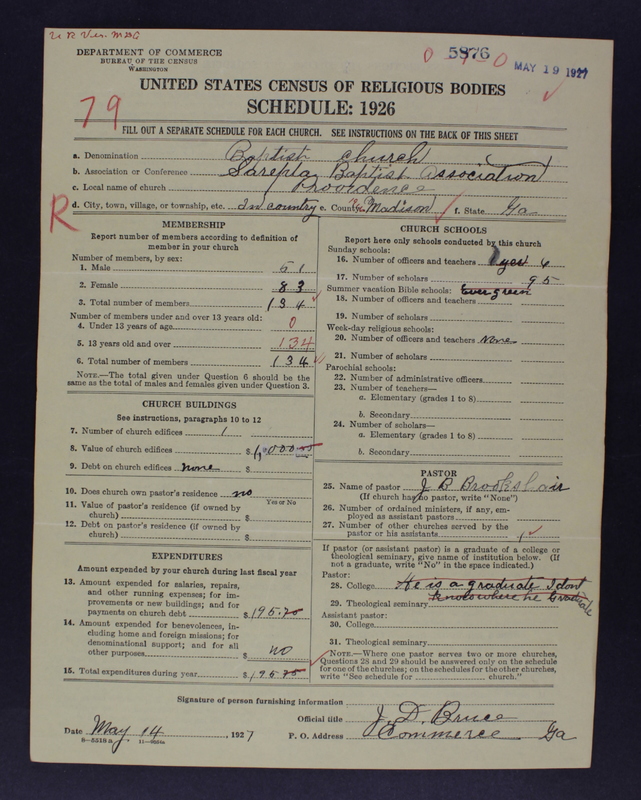 U R Ver. MDG
DEPARTMENT OF COMMERCE
BUREAU OF THE CENSUS
WASHINGTON
5876
MAY 19 1927
UNITED STATES CENSUS OF RELIGIOUS BODIES
SCHEDULE: 1926
79
FILL OUT A SEPARATE SCHEDULE FOR EACH CHURCH. SEE INSTRUCTIONS ON THE BACK OF THIS SHEET
a. Denomination Baptist church
b. Association or Conference Sarepta Baptist Association
c. Local name of church Providence
R
d. City, town, village, or township, etc. In country e. County Madison f. State Ga
MEMBERSHIP
Report number of members according to definition of
member in your church
Number of members, by sex:
1. Male 51
2. Female 83
3. Total number of members 134
Number of members under and over 13 years old:
4. Under 13 years of age 0
5. 13 years old and over 134
6. Total number of members 134
NOTE.—The total given under Question 6 should be the
same as the total of males and females given under Question 3.
CHURCH BUILDINGS
See instructions, paragraphs 10 to 12
7. Number of church edifices 1
8. Value of church edifices $ 1,000
9. Debt on church edifices none $
10. Does church own pastor's residence no
Yes or No
11. Value of pastor's residence (if owned by
church) $
12. Debt on pastor's residence (if owned by
church) $
EXPENDITURES
Amount expended by your church during last fiscal year
13. Amount expended for salaries, repairs,
and other running expenses; for im-
provements or new buildings; and for
payments on church debt $ 195.75
14. Amount expended for benevolences, in-
cluding home and foreign missions; for
denominational support; and for all
other purposes $ no
15. Total expenditures during year $ 195.75
CHURCH SCHOOLS
Report here only schools conducted by this church
Sunday schools:
16. Number of officers and teachers yes 6
17. Number of scholars 95
Summer vacation Bible schools: Evergreen
18. Number of officers and teachers
19. Number of scholars
Week-day religious schools:
20. Number of officers and teachers None
21. Number of scholars
Parochial schools:
22. Number of administrative officers
23. Number of teachers—
a. Elementary (grades 1 to 8)
b. Secondary
24. Number of scholars—
a. Elementary (grades 1 to 8)
b. Secondary
PASTOR
25. Name of pastor J B Brookshair
(If church has no pastor, write "None")
26. Number of ordained ministers, if any, em-
ployed as assistant pastors
27. Number of other churches served by the
pastor or his assistants 1
If pastor (or assistant pastor) is a graduate of a college or
theological seminary, give name of institution below. (If
not a graduate, write "No" in the space indicated.)
Pastor:
28. College He is a graduate I dont
29. Theological seminary know where he Graduate
Assistant pastor:
30. College
31. Theological seminary
NOTE.—Where one pastor serves two or more churches,
Questions 28 and 29 should be answered only on the schedule
for one of the churches; on the schedules for the other churches,
write "See schedule for church."
Signature of person furnishing information
Official title J. D. Bruce
Date May 14, 1927 P. O. Address Commerce Ga
8—5518 a